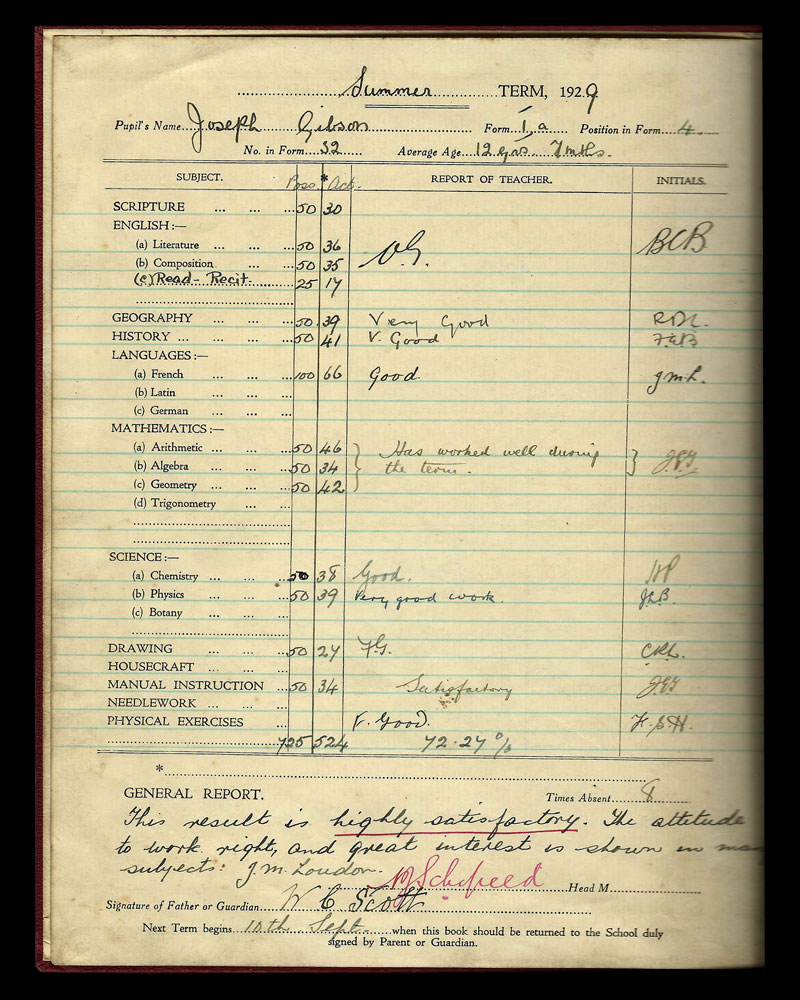 Summer TERM, 1929
Pupil's Name Joseph Gibson Form 1a Position in Form 4
No. in Form 32 Average Age 12 yrs 7 mths.
SUBJECT. Poss. * Act. REPORT OF TEACHER. INITIALS.
SCRIPTURE ... ... ... 50 30
ENGLISH:—
(a) Literature ... ... ... 50 36 V.G. BCB
(b) Composition ... ... 50 35
(c) Read- Recit. 25 17
GEOGRAPHY ... ... ... 50 39 Very Good
HISTORY ... ... ... ... 50 41 V. Good
LANGUAGES:—
(a) French ... ... ... 100 66 Good. J.M.L.
(b) Latin ... ... ...
(c) German ... ... ...
MATHEMATICS:—
(a) Arithmetic ... ... ... 50 46 Has worked well during
(b) Algebra ... ... ... 50 34 the term.
(c) Geometry ... ... ... 50 42
(d) Trigonometry ... ...
SCIENCE:—
(a) Chemistry ... ... ... 50 38 Good.
(b) Physics ... ... ... 50 39 Very good work. J.L.B.
(c) Botany ... ... ...
DRAWING ... ... ... 50 27 F.G.
HOUSECRAFT ... ... ...
MANUAL INSTRUCTION ... 50 34 Satisfactory
NEEDLEWORK ... ... ...
PHYSICAL EXERCISES ... V. Good.
725 524 72.27%
*
GENERAL REPORT. Times Absent 8
This result is highly satisfactory. The attitude
to work right, and great interest is shown in
subjects: J.M. Loudon.
Head M
Signature of Father or Guardian W C Scott
Next Term begins 10th Sept. when this book should be returned to the School duly
signed by Parent or Guardian.